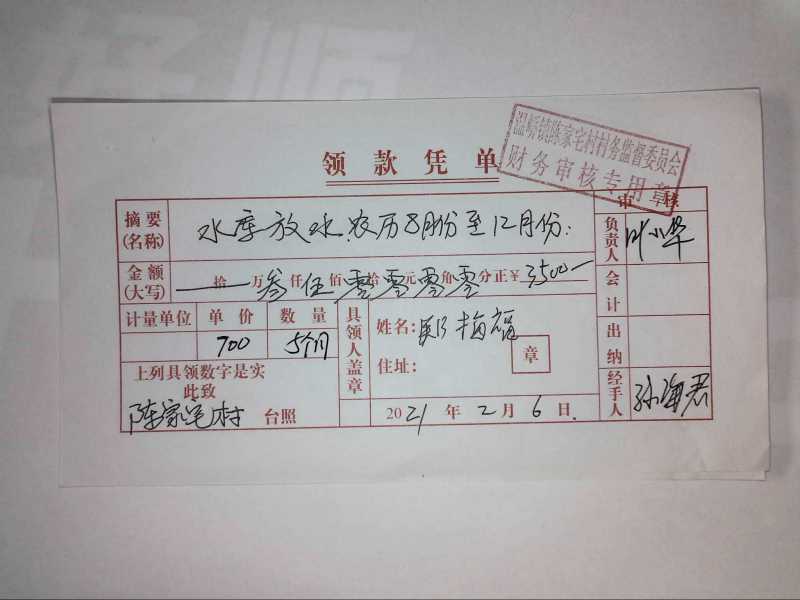 领款凭单
温峤镇陈家宅村村务监督委员会
财务审核专用章
审核
摘要(名称) 水库放水,农历8月份至12月份:
金额(大写) 拾万叁仟伍佰零拾零元零角零分正¥3500一
计量单位 单价 数量
700 5个月
上列具领数字是实
此致
陈家宅村 台照
具领人盖章
姓名:郑梅福
住址:
章
2021年2月6日
负责人 叶小华
会计
出纳
经手人 孙海君